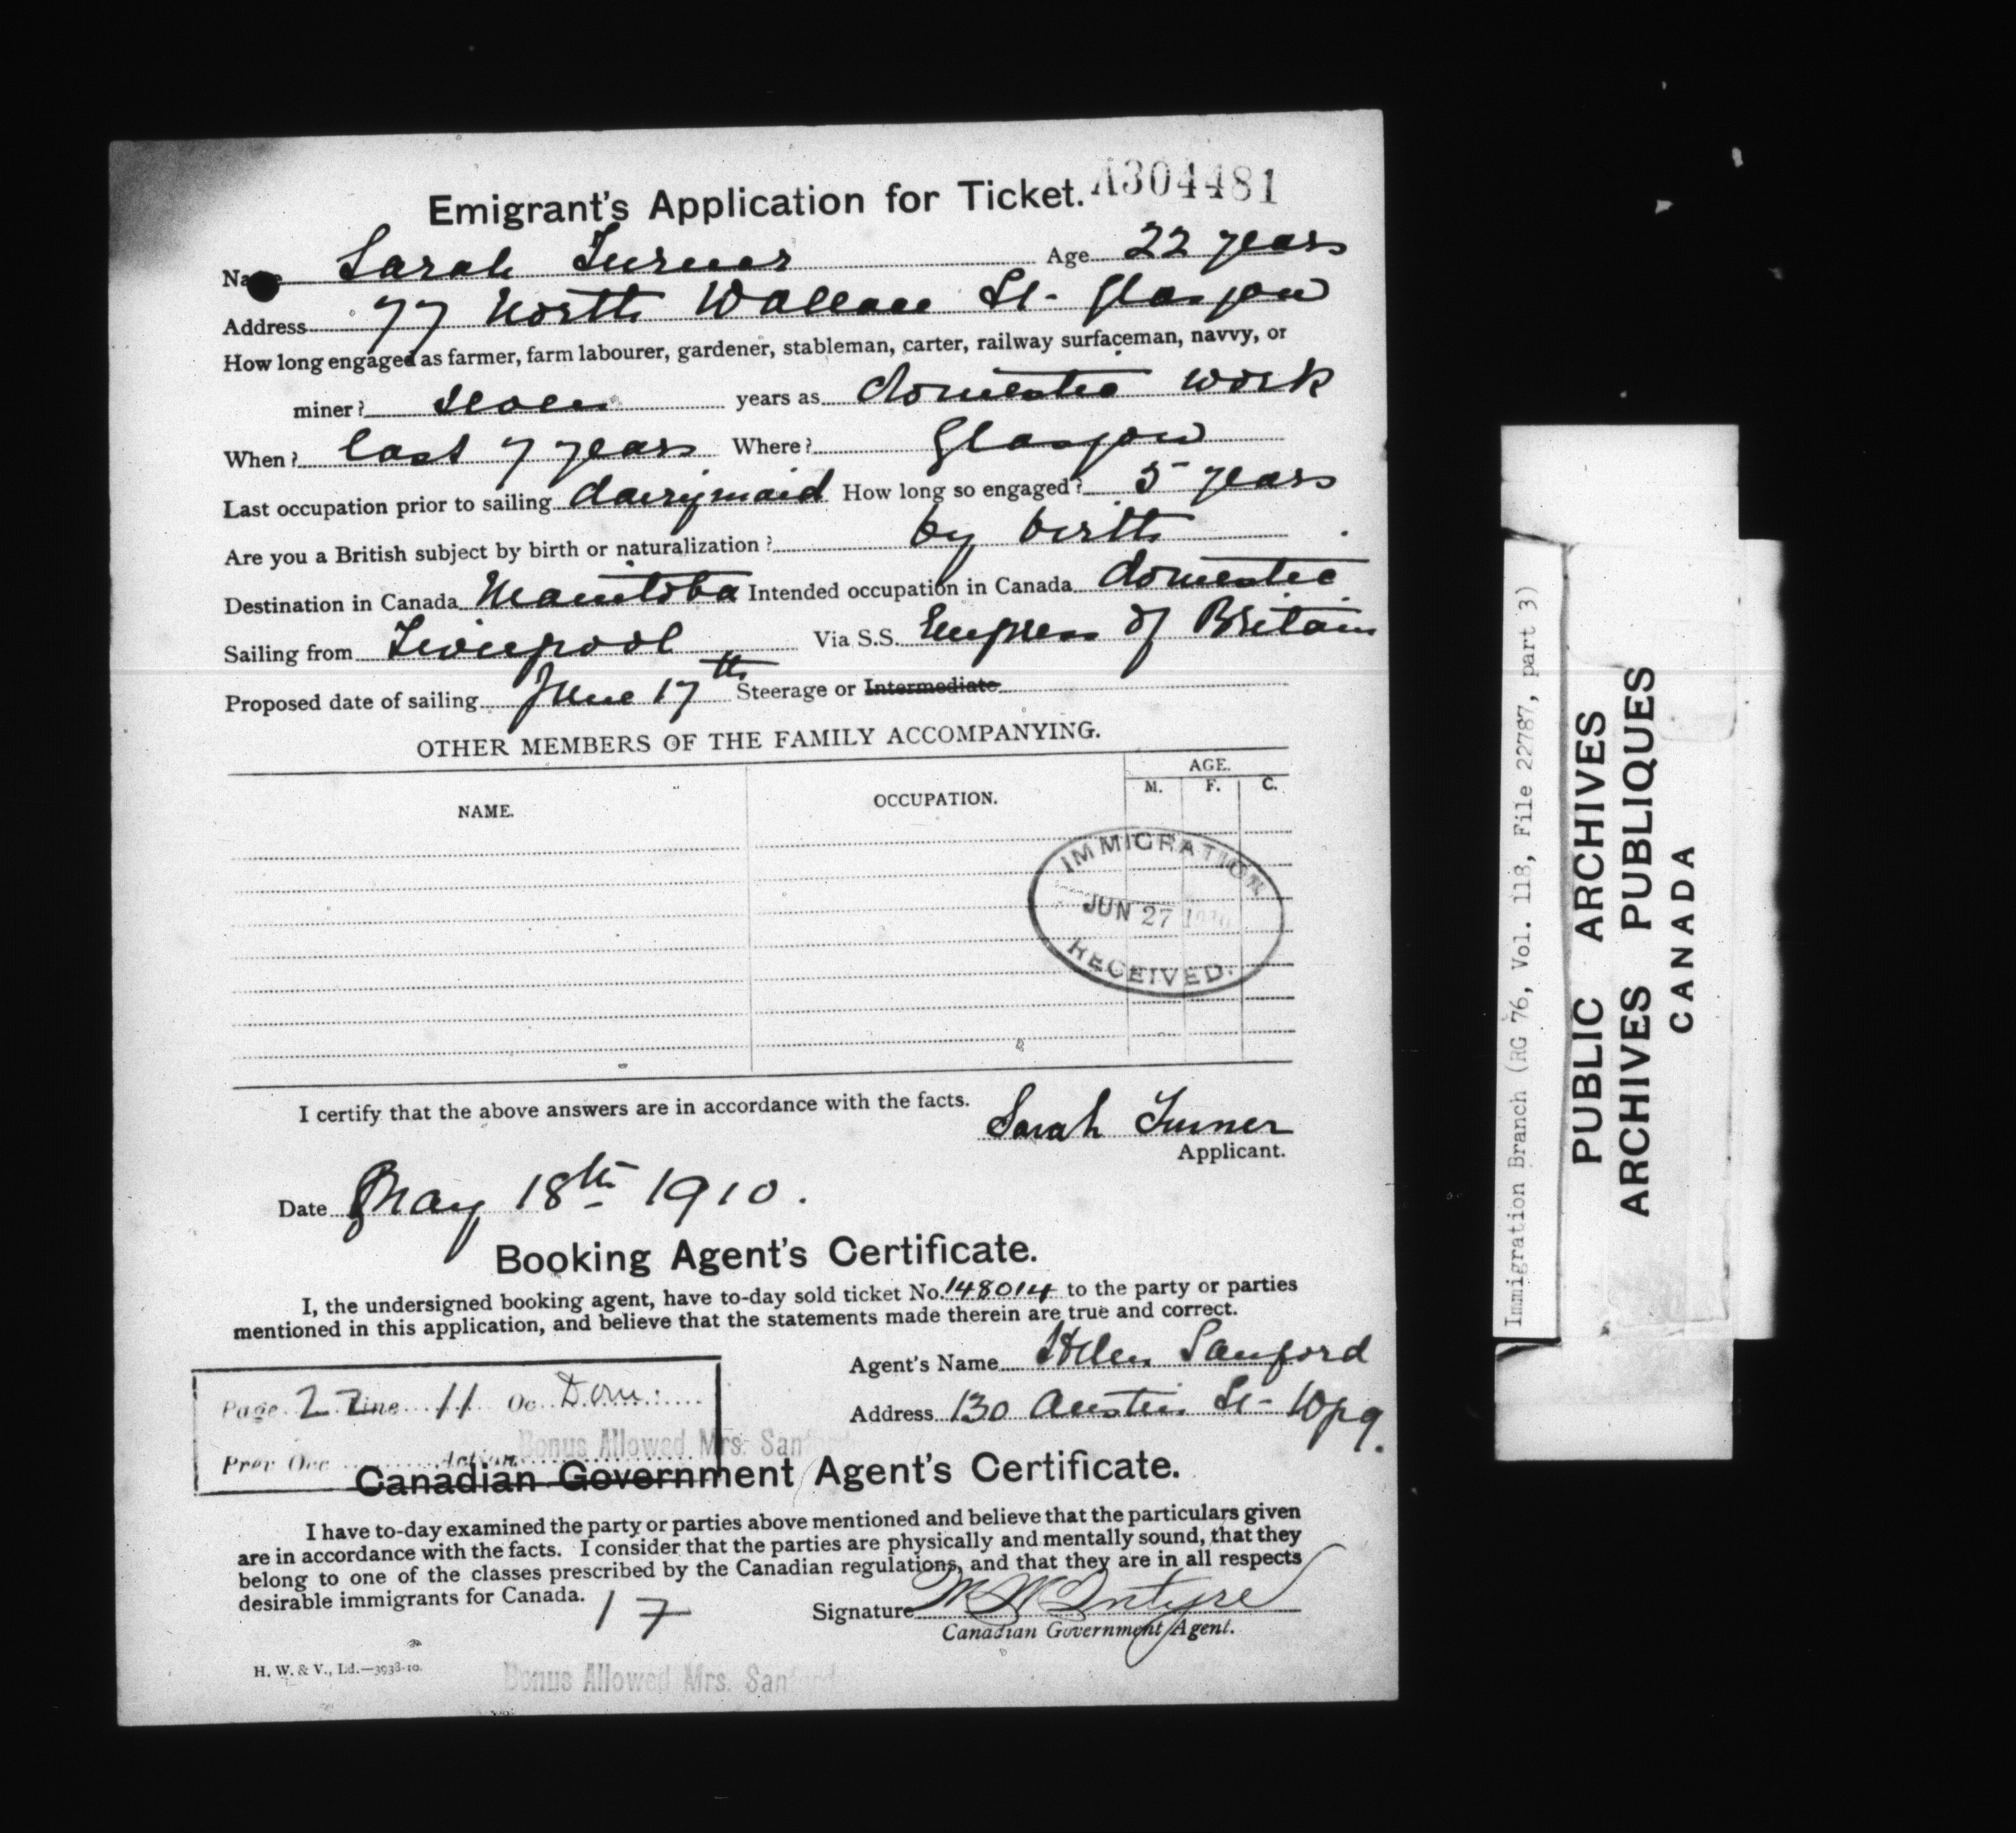 Emigrant's Application for Ticket. A304481
Name Sarah Turner Age 22 years
Address 77 North Wallace St- Glasgow
How long engaged as farmer, farm labourer, gardener, stableman, carter, railway surfaceman, navvy, or
miner? seven years as domestic work
When? last 7 years Where? Glasgow
Last occupation prior to sailing dairymaid How long so engaged? 5 years
Are you a British subject by birth or naturalization? by birth
Destination in Canada Manitoba Intended occupation in Canada domestic
Sailing from Liverpool Via S.S. Empress of Britain
Proposed date of sailing June 17th Steerage or Intermediate
OTHER MEMBERS OF THE FAMILY ACCOMPANYING.
NAME. OCCUPATION. AGE.
M. F. C.
IMMIGRATION
JUN 27 1910
RECEIVED.
I certify that the above answers are in accordance with the facts.
Sarah Turner
Applicant.
Date May 18th 1910.
Booking Agent's Certificate.
I, the undersigned booking agent, have to-day sold ticket No. 148014 to the party or parties
mentioned in this application, and believe that the statements made therein are true and correct.
Agent's Name Helen Sanford
Address 130 Austin St- Wpg.
Page 22 Line 11 Oc Dom:
Prev Occ Action
Bonus Allowed Mrs. Sanford
Canadian Government Agent's Certificate.
I have to-day examined the party or parties above mentioned and believe that the particulars given
are in accordance with the facts. I consider that the parties are physically and mentally sound, that they
belong to one of the classes prescribed by the Canadian regulations, and that they are in all respects
desirable immigrants for Canada.
17
Signature W McIntyre
Canadian Government Agent.
H. W. & V., Ld.—3938-10.
Bonus Allowed Mrs. Sanford
Immigration Branch (RG 76, Vol. 118, File 22787, part 3)
PUBLIC ARCHIVES
ARCHIVES PUBLIQUES
CANADA